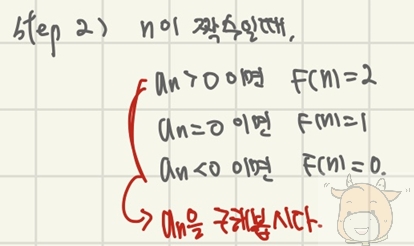 step 2) n이 짝수일때,
an>0 이면 F(n)=2
an=0 이면 F(n)=1
an<0 이면 F(n)=0.
an을 구해봅시다.